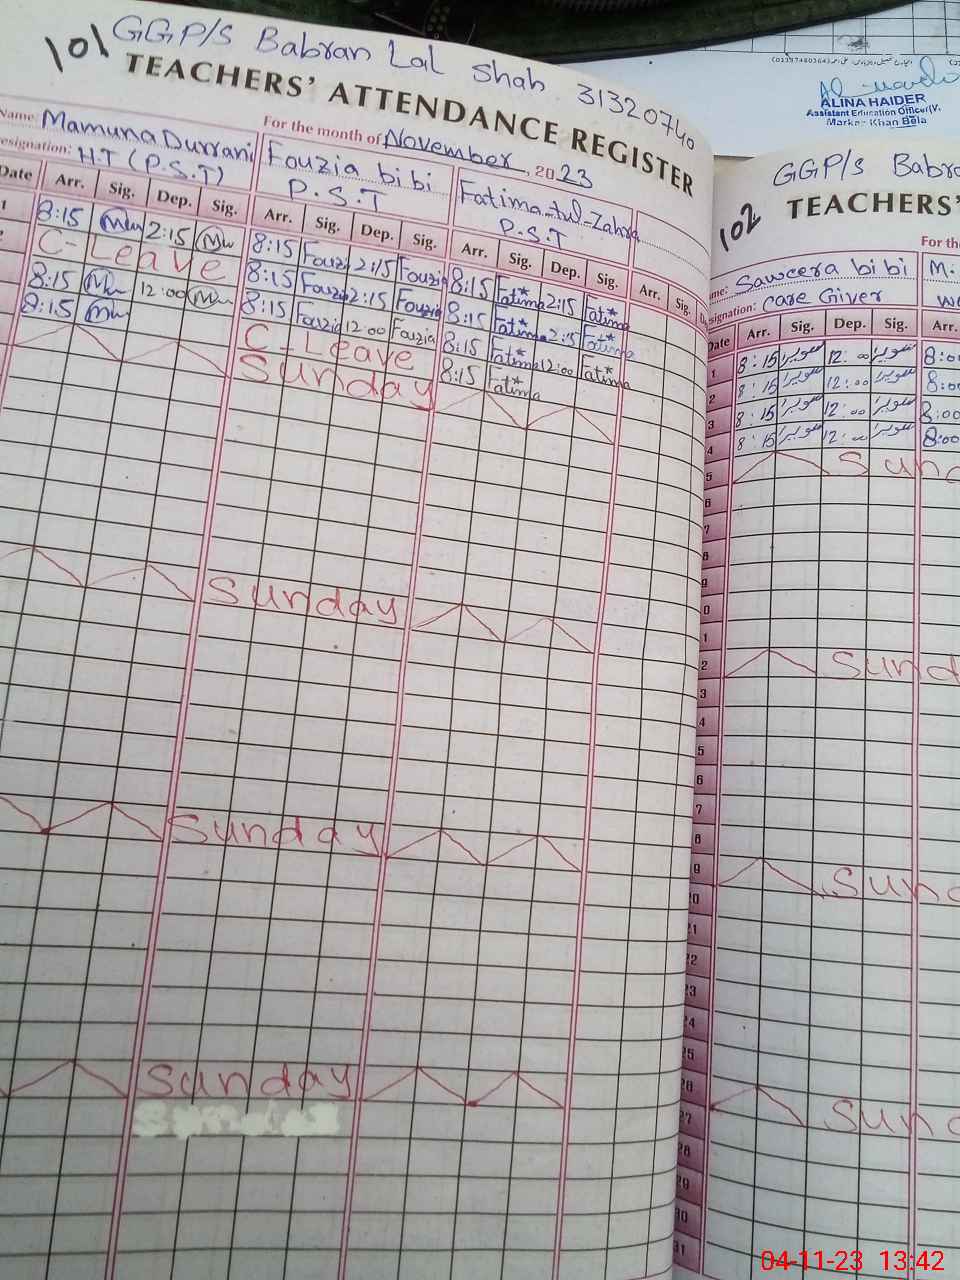 101 GGP/S Babran Lal Shah 31320740
TEACHERS' ATTENDANCE REGISTER
For the month of November, 2023
Name: Mamuna Durrani
esignation: H.T (P.S.T)
Fouzia bibi
P.S.T
Fatima-tul-Zahra
P.S.T
Date Arr. Sig. Dep. Sig. Arr. Sig. Dep. Sig. Arr. Sig. Dep. Sig. Arr. Sig.
1 8:15 2:15 8:15 Fouzia 2:15 Fouzia 8:15 Fatima 2:15 Fatima
C-Leave 8:15 Fouzia 2:15 Fouzia 8:15 Fatima 2:15 Fatima
8:15 12:00 8:15 Fouzia 12:00 Fouzia 8:15 Fatima 12:00 Fatima
8:15 C-Leave 8:15 Fatima
Sunday
Sunday
Sunday
Sunday
ALINA HAIDER
Assistant Education Officer(W.
Markaz Khan Bela
GGP/S Babra
102 TEACHERS'
For the
me: Saweera bibi M.
signation: Care Giver
Date Arr. Sig. Dep. Sig. Arr.
1 8:15 سویرا 12:00 سویرا 8:00
2 8:15 سویرا 12:00 سویرا 8:00
3 8:15 سویرا 12:00 سویرا 8:00
4 8:15 سویرا 12:00 سویرا 8:00
5 Sund
6
7
8
9
0
1
2 Sund
3
4
5
6
7
8
9 Sund
20
21
22
23
24
25
26 Sund
27
28
29
30
31
04-11-23 13:42